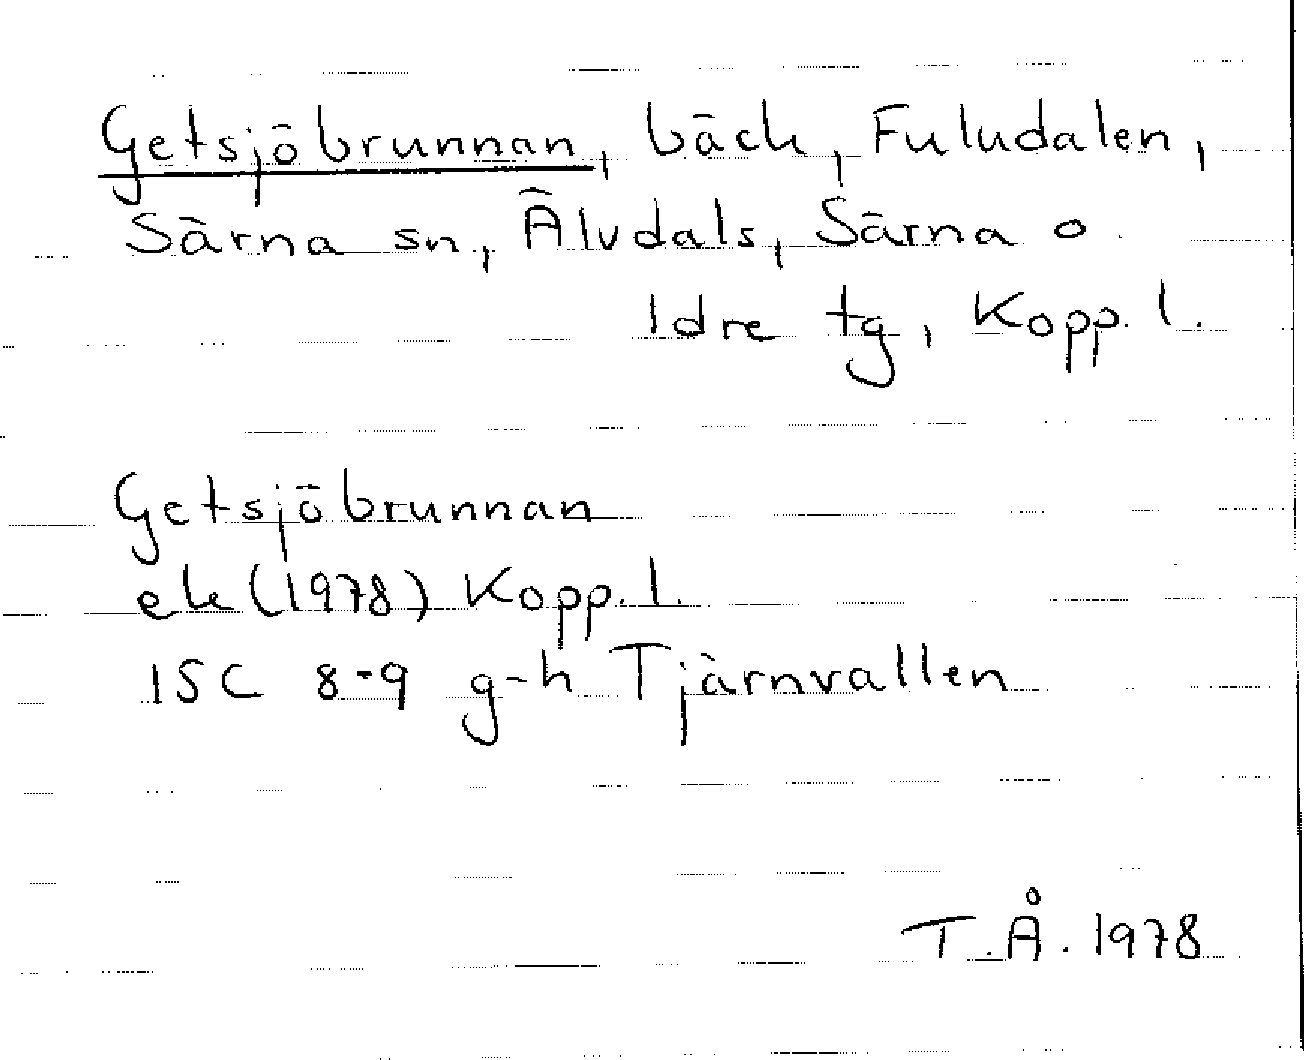 Getsjöbrunnan, bäck, Fuludalen,
Särna sn, Älvdals, Särna o
Idre tg, Kopp. l.
Getsjöbrunnan
ek (1978) Kopp. l.
15C 8-9 g-h Tjärnvallen
T.Å. 1978